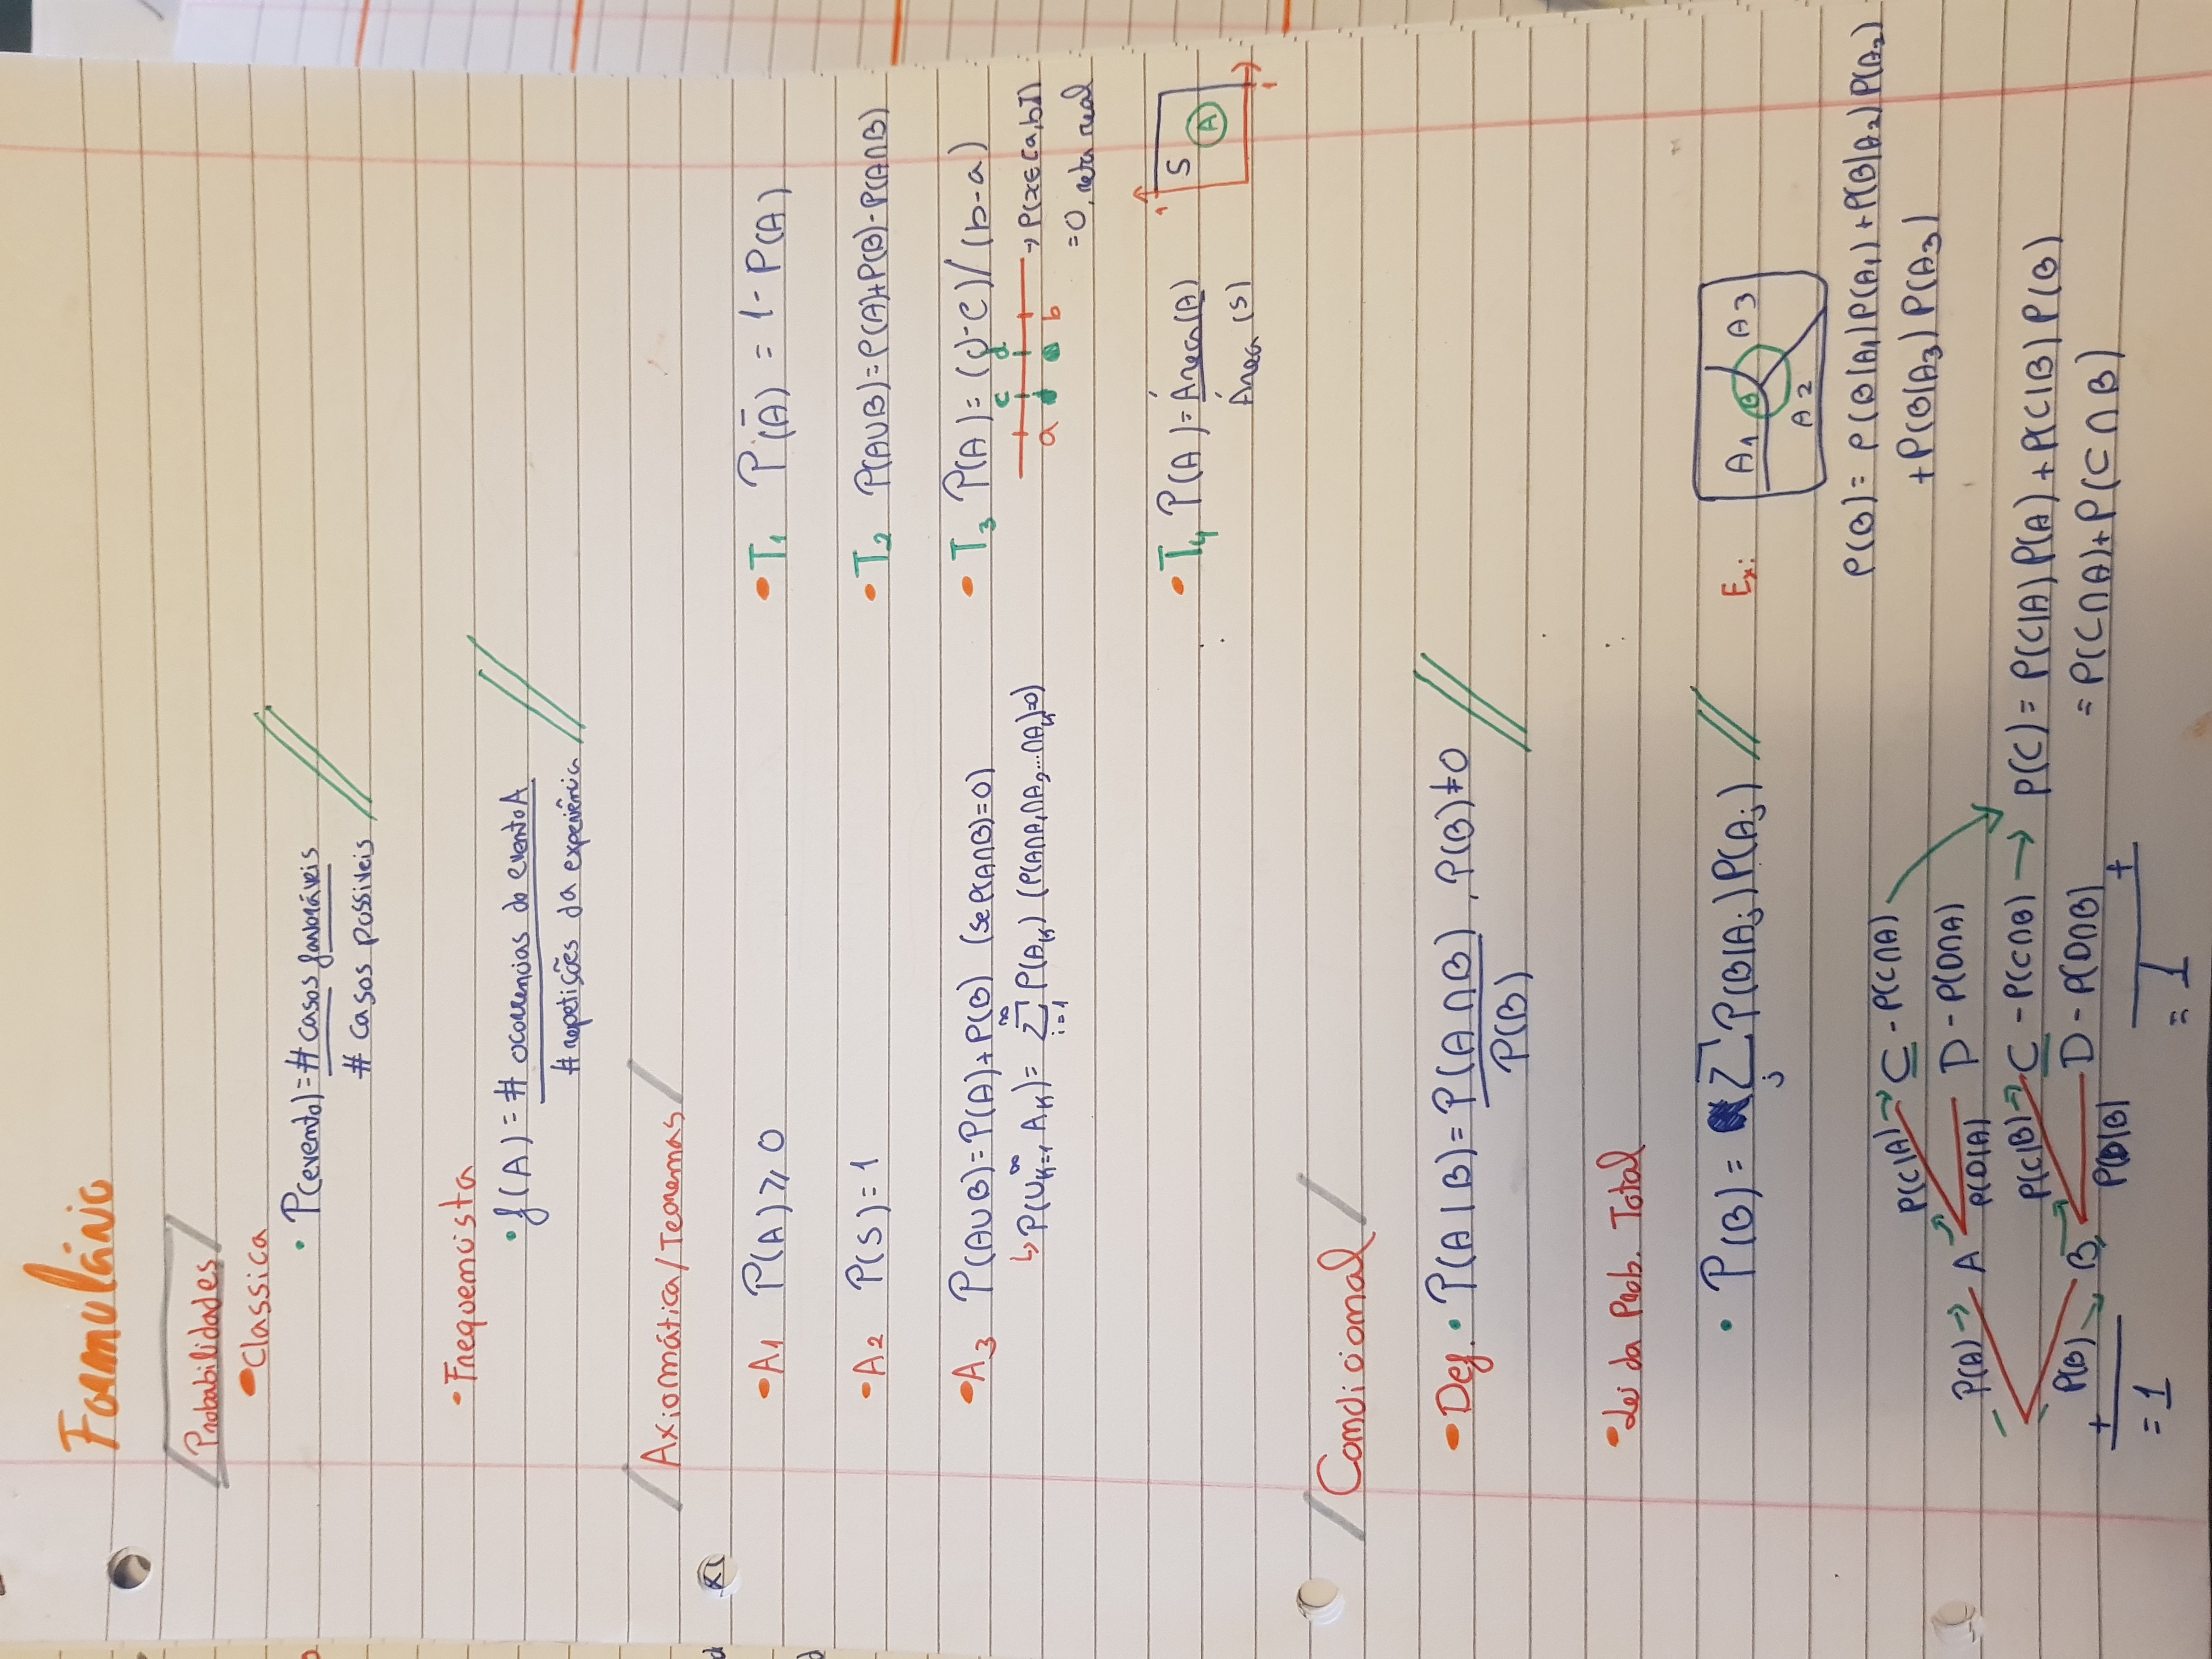 Formulário
Probabilidades
Classica
P(evento) = # casos favoráveis
# casos possiveis
Frequencista
f(A) = # ocorrencias do evento A
# repetições da experiência
Axiomática/Teoremas
A1 P(A) ⩾ 0
T1 P(Ā) = 1 - P(A)
A2 P(S) = 1
T2 P(A∪B) = P(A)+P(B)-P(A∩B)
A3 P(A∪B) = P(A)+P(B) (se P(A∩B)=0)
T3 P(A) = (d-c)/(b-a)
↳ P(∪ₖ₌₁^∞ Aₖ) = ∑ᵢ₌₁^∞ P(Aₖ) (P(A∩A₁∩A₂...∩Aₖ)=0)
c d
a b → P(x∈[a,b])
=0, reta real
T4 P(A) = Área(A)
Área (S)
1 S A
1
Condicional
Def. P(A|B) = P(A∩B), P(B)≠0
P(B)
Lei da Prob. Total
P(B) = ∑ⱼ P(B|Aⱼ)P(Aⱼ)
Ex:
A1 B A3
A2
P(B) = P(B|A₁)P(A₁)+P(B|A₂)P(A₂)
+P(B|A₃)P(A₃)
P(C|A) → C - P(C∩A)
P(A) → A
P(D|A) D - P(D∩A)
P(C|B) → C - P(C∩B) → P(C) = P(C|A)P(A)+P(C|B)P(B)
P(B) B
P(D|B) D - P(D∩B)
= P(C∩A)+P(C∩B)
+ +
= 1 = 1